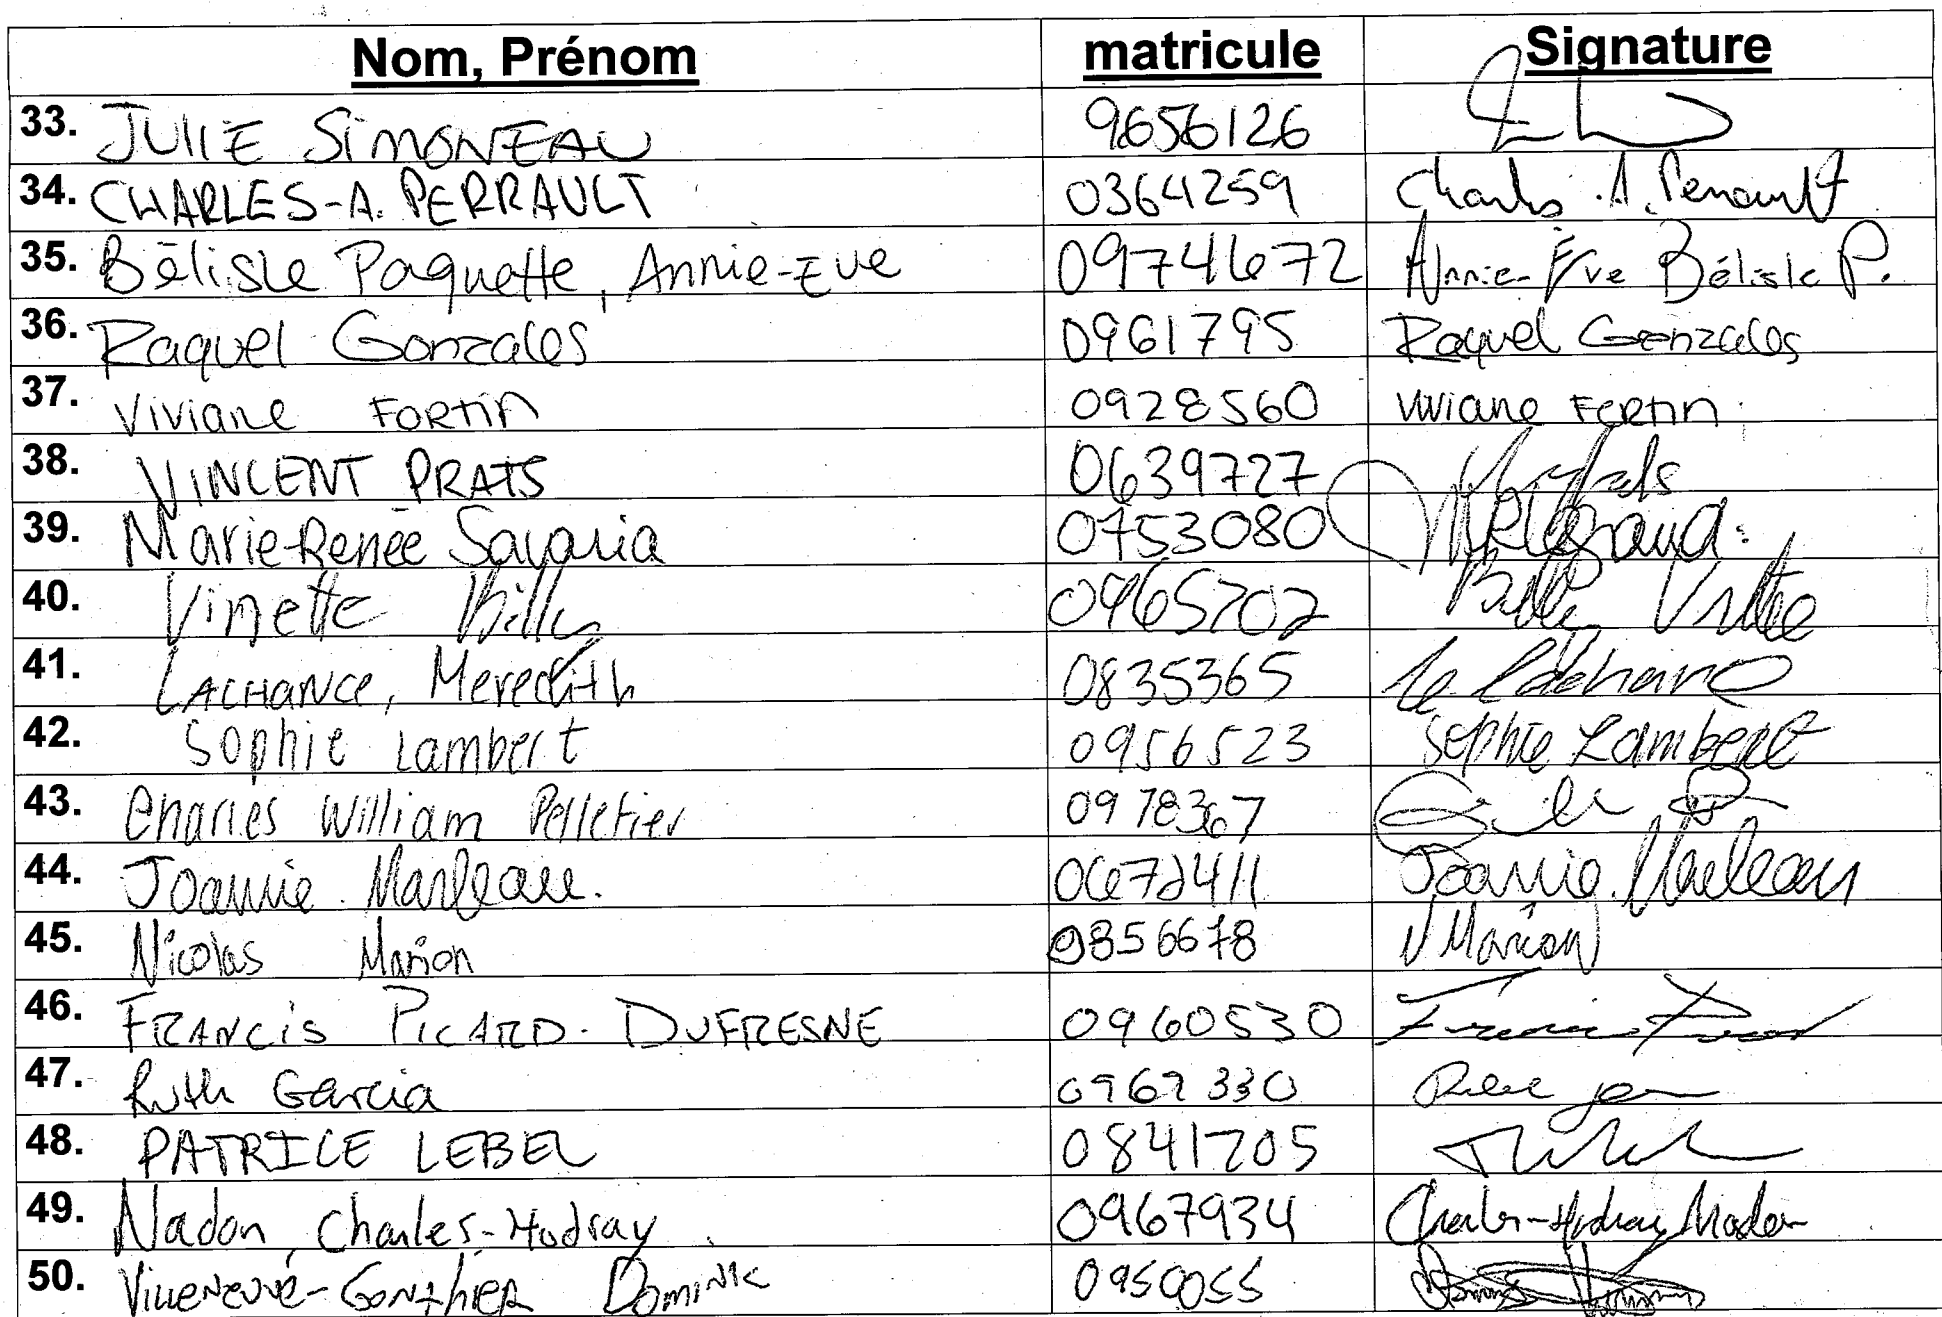 Nom, Prénom matricule Signature
33. JULIE SIMONEAU 9656126
34. CHARLES-A. PERRAULT 0364259 Charles .A. Perrault
35. Bélisle Paquette, Annie-Eve 09741672 Annie-Eve Bélisle P.
36. Raquel Gonzales 0961795 Raquel Gonzales
37. Viviane FORTIN 0928560 Viviane FORTIN
38. VINCENT PRATS 0639727
39. Marie-Renée Savaria 0753080
40. Vinette Billy 0965702 Billy
41. LACHANCE, Meredith 0835365
42. Sophie Lambert 0956523 Sophie Lambert
43. Charles William Pelletier 0978367
44. Joannie Marleau. 0672411 Joannie Marleau
45. Nicolas Marion 0856678 N Marion
46. FRANCIS PICARD-DUFRESNE 0960530 Francis Picard
47. Ruth Garcia
48. PATRICE LEBEL 0841705
49. Nadon, Charles-Hodray 0967934 Charles-Hodray Nadon
50. Villeneuve-Gonthier Dominic 0950055